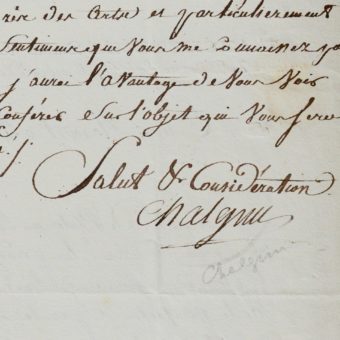 des Arts et particulierement
Sentimens que Vous me Connoinez
j'aurai l'avantage de Vous Voir
Conférer Sur l'objet qui Vous fera
Salut & Considération
Chalgrin
Chalgrin